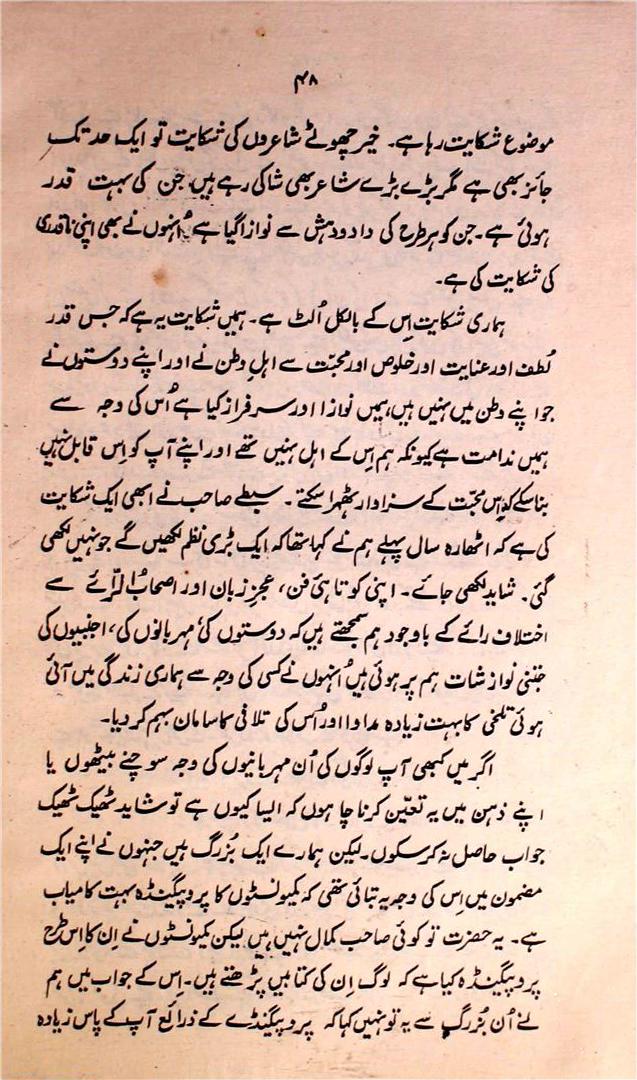 ۴۸
موضوع شکایت رہا ہے۔ خیر چھوٹے شاعروں کی شکایت تو ایک حد تک
جائز بھی ہے مگر بڑے بڑے شاعر بھی شاکی رہے ہیں جن کی بہت قدر
ہوئی ہے۔ جن کو ہر طرح کی داد و دہش سے نوازا گیا ہے اُنہوں نے بھی اپنی ناقدری
کی شکایت کی ہے۔
ہماری شکایت اِس کے بالکل اُلٹ ہے۔ ہمیں شکایت یہ ہے کہ جس قدر
لُطف اور عنایت اور خلوص اور محبّت سے اہلِ وطن نے اور اپنے دوستوں نے
جو اپنے وطن میں نہیں ہیں، ہمیں نوازا اور سرفراز کیا ہے اُس کی وجہ سے
ہمیں ندامت ہے کیونکہ ہم اِس کے اہل نہیں تھے اور اپنے آپ کو اِس قابل نہیں
بنا سکے کہ اِس محبّت کے سزاوار ٹھہرا سکتے۔ سبطے صاحب نے ابھی ایک شکایت
کی ہے کہ اٹھارہ سال پہلے ہم نے کہا تھا کہ ایک بڑی نظم لکھیں گے جو نہیں لکھی
گئی۔ شاید لکھی جائے۔ اپنی کوتاہئ فن، عجزِ زبان اور اصحابُ الرّائے سے
اختلاف رائے کے باوجود ہم سمجھتے ہیں کہ دوستوں کی، مہربانوں کی، اجنبیوں کی
جتنی نوازشات ہم پر ہوئی ہیں اُنہوں نے کسی کی وجہ سے ہماری زندگی میں آئی
ہوئی تلخی کا بہت زیادہ مداوا اور اُس کی تلافی کا سامان بہم کر دیا۔
اگر میں کبھی آپ لوگوں کی اُن مہربانیوں کی وجہ سوچنے بیٹھوں یا
اپنے ذہن میں یہ تعیّن کرنا چاہوں کہ ایسا کیوں ہے تو شاید ٹھیک ٹھیک
جواب حاصل نہ کر سکوں۔ لیکن ہمارے ایک بُزرگ ہیں جنہوں نے اپنے ایک
مضمون میں اِس کی وجہ یہ بتائی تھی کہ کمیونسٹوں کا پروپیگنڈہ بہت کامیاب
ہے۔ یہ حضرت تو کوئی صاحب کمال نہیں ہیں لیکن کمیونسٹوں نے اِن کا اِس طرح
پروپیگنڈہ کیا ہے کہ لوگ اِن کی کتابیں پڑھتے ہیں۔ اِس کے جواب میں ہم
نے اُن بُزرگ سے یہ تو نہیں کہا کہ پروپیگنڈے کے ذرائع آپ کے پاس زیادہ